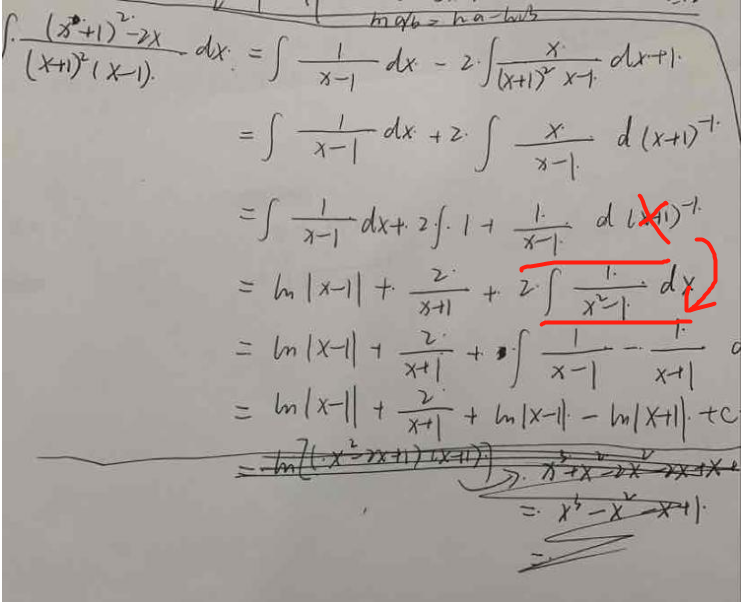 ln a/b = ln a - ln b
∫ (x+1)²-2x / (x+1)²(x-1) dx. = ∫ 1/(x-1) dx - 2.∫ x/((x+1)² x-1) dx+1.
= ∫ 1/(x-1) dx + 2. ∫ x/(x-1) d(x+1)⁻¹.
= ∫ 1/(x-1) dx + 2∫. 1 + 1/(x-1) d(x+1)⁻¹.
= ln|x-1| + 2/(x+1) + 2∫ 1/(x²-1) dx
= ln|x-1| + 2/(x+1) + ∫ 1/(x-1) - 1/(x+1) d
= ln|x-1| + 2/(x+1) + ln|x-1| - ln|x+1| + C
= ln[(x²-2x+1)(x+1)] x³+x²-2x²-2x+x+
= x³-x²-x+1.
=